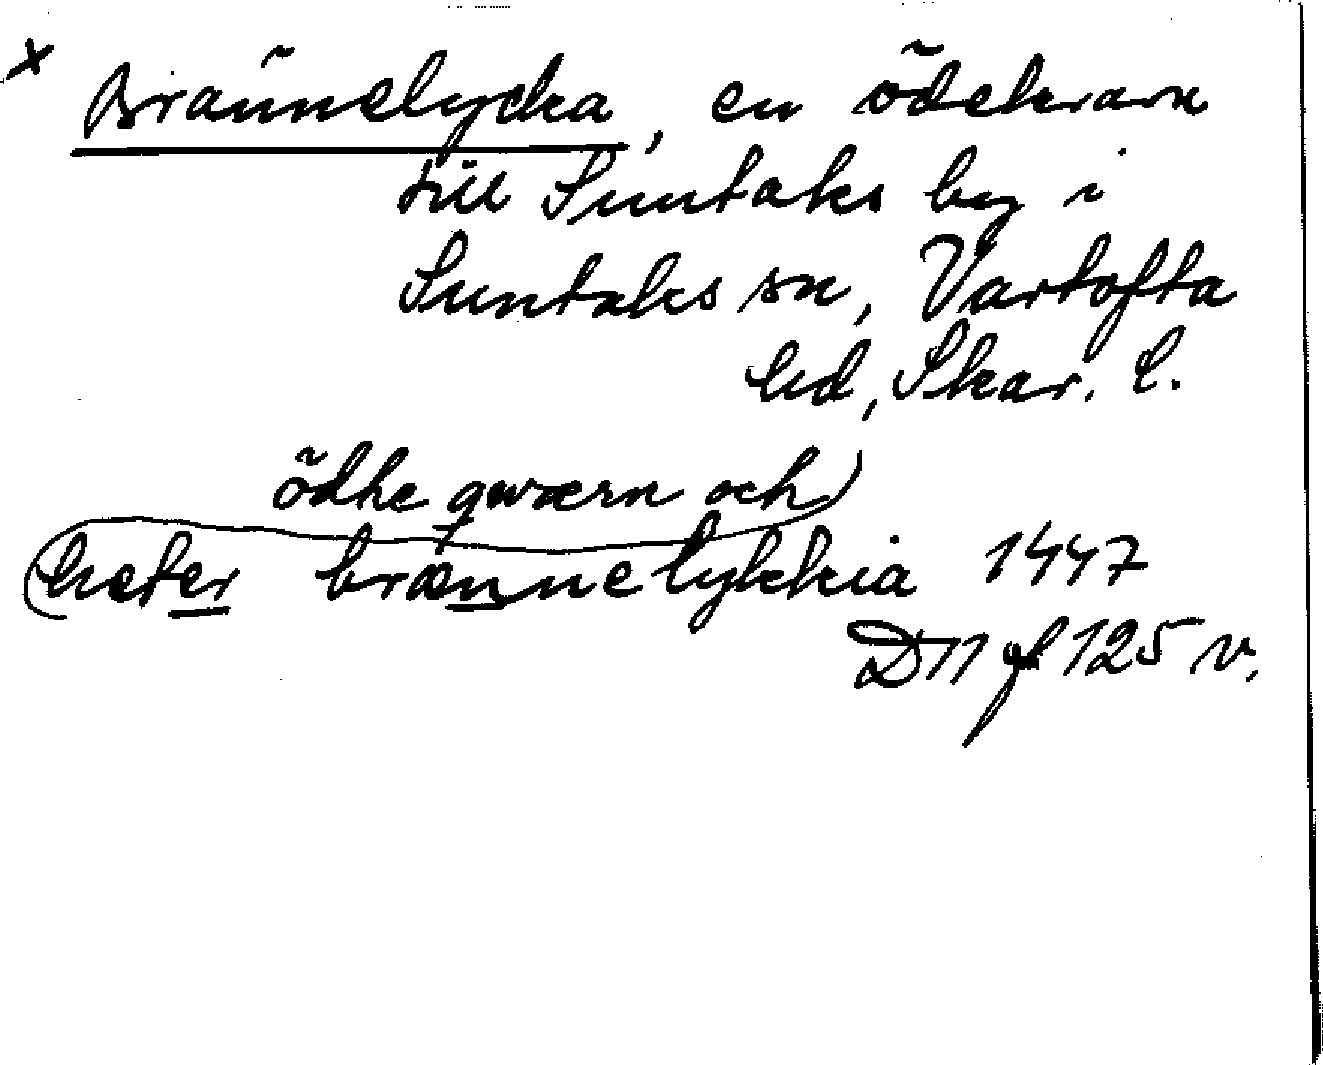 x Brännelycka, en ödekvarn
till Suntaks by i
Suntaks sn, Vartofta
hd, Skar. l.
(ödhe qwærn och)
heter brænnelykkia 1447
D 11 f 125 v.